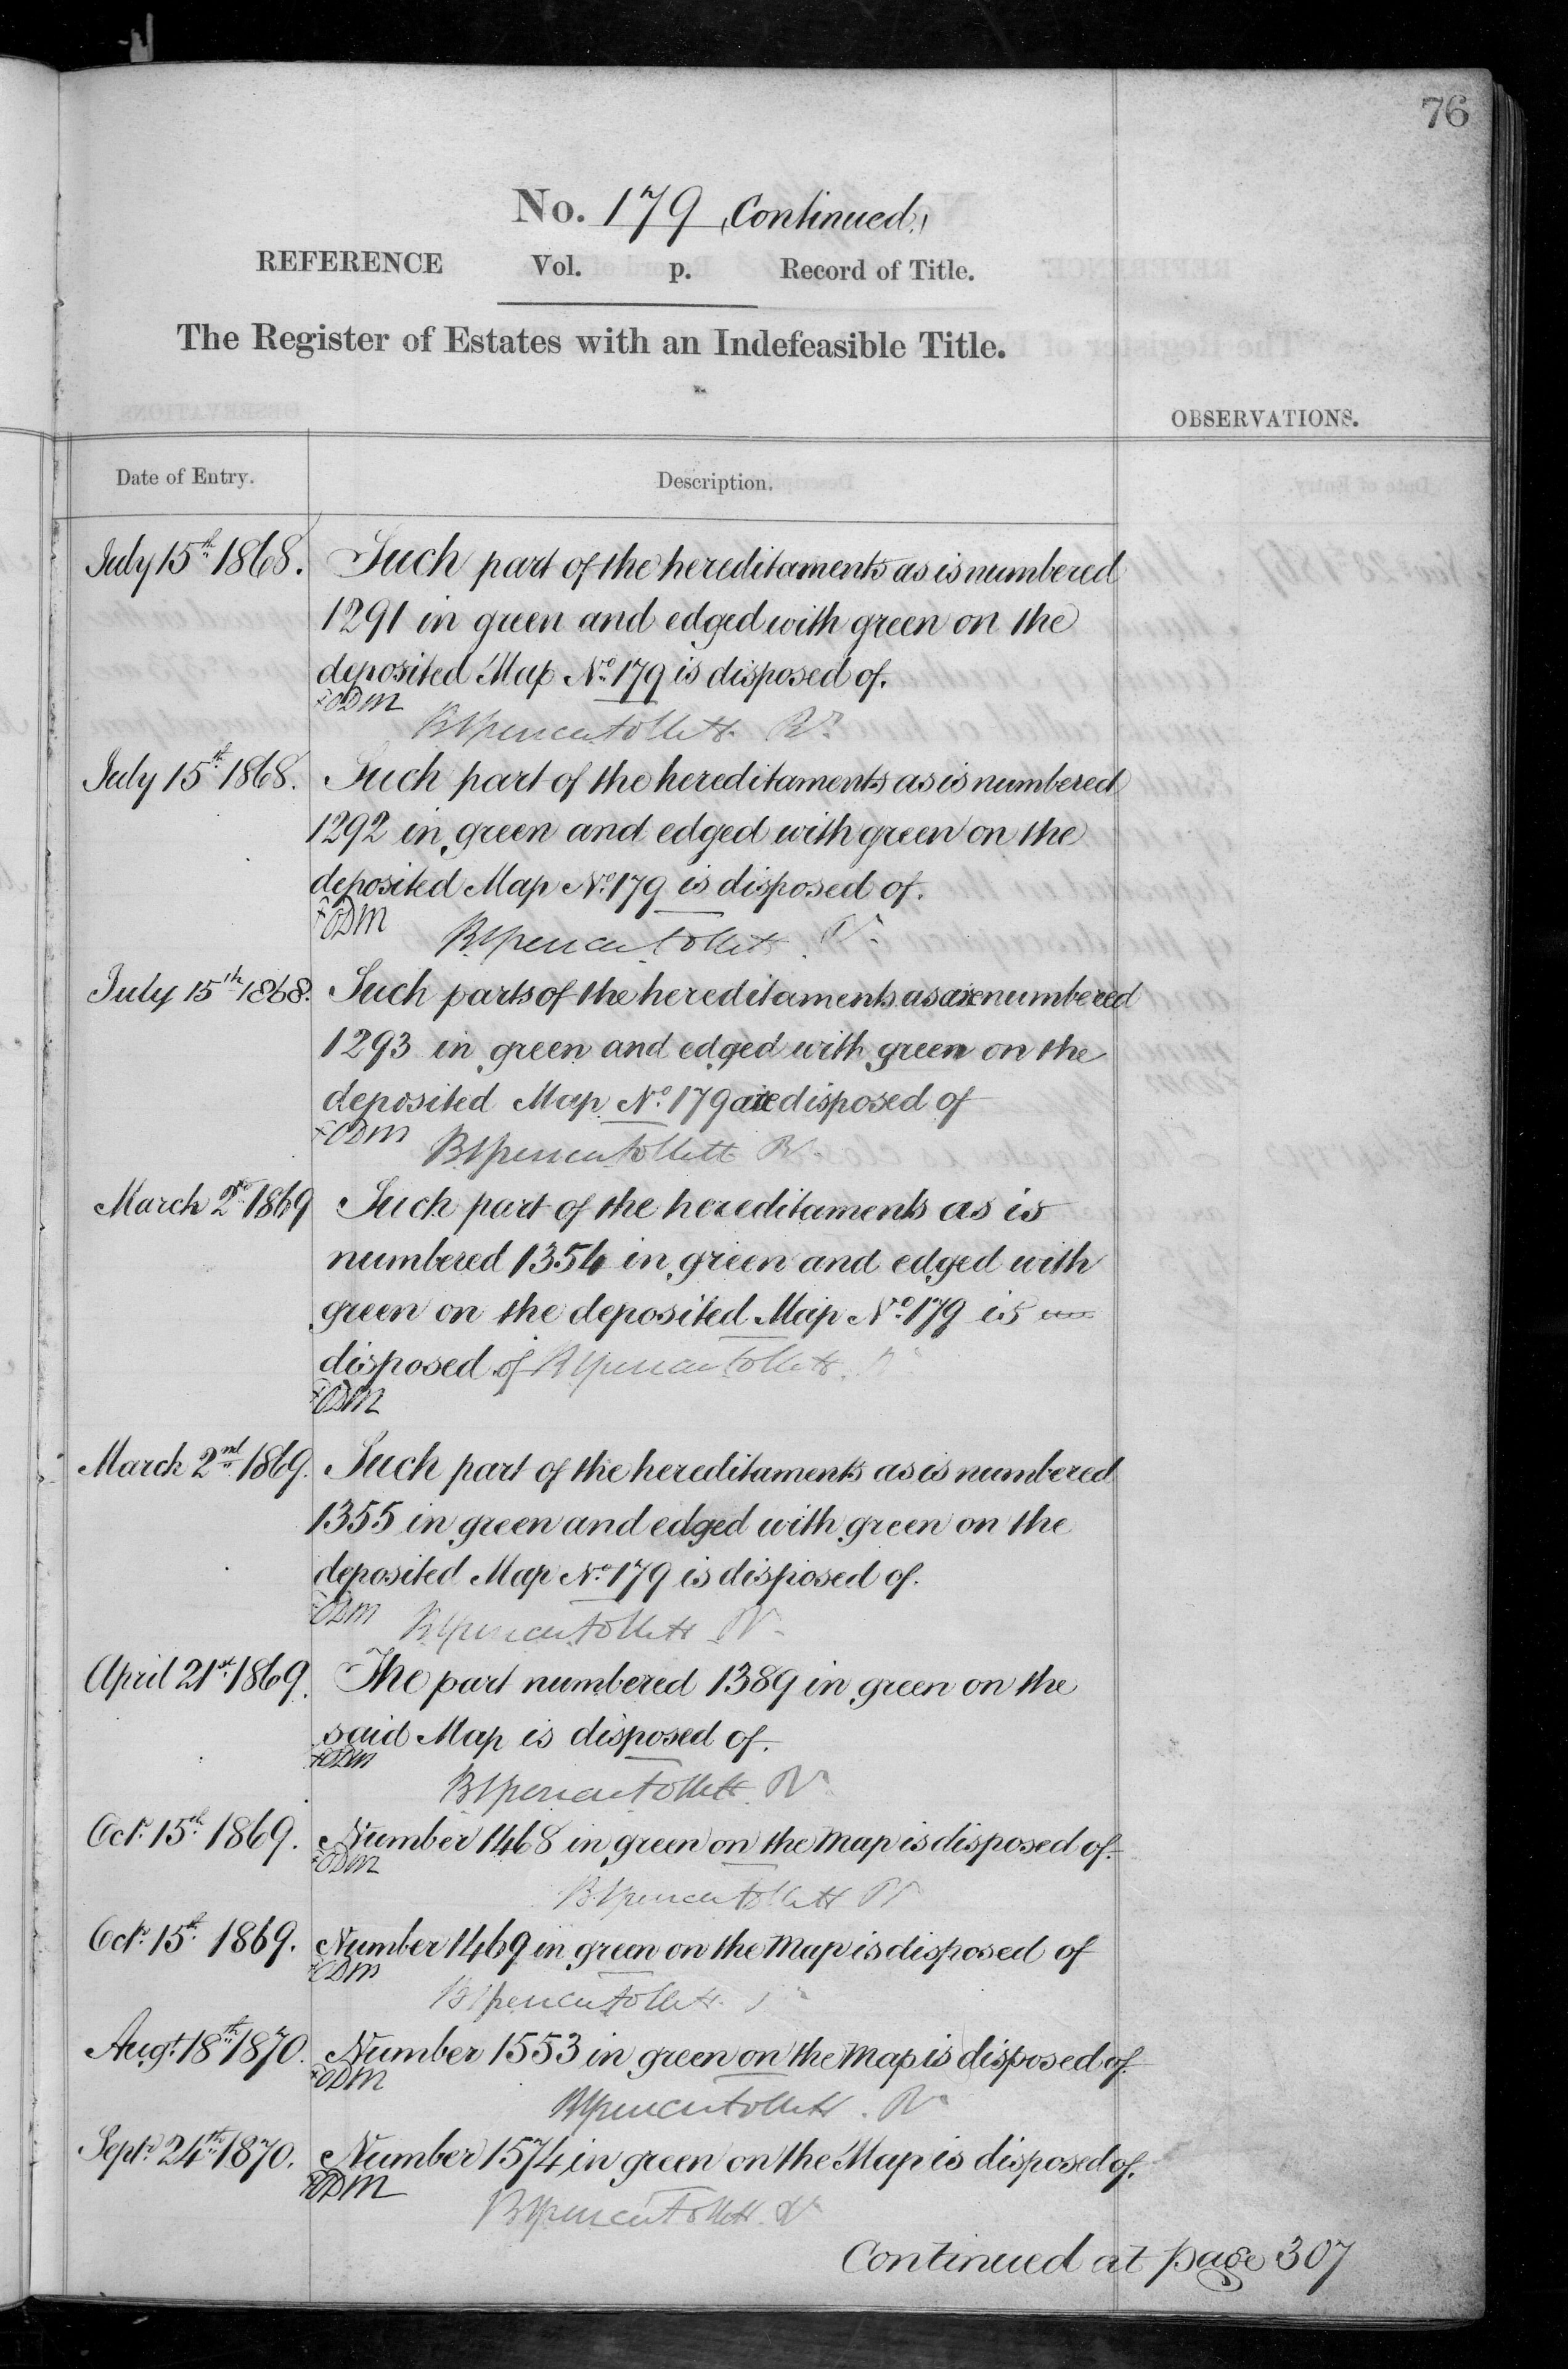 76
No. 179 (Continued.)
REFERENCE Vol. p. Record of Title.
The Register of Estates with an Indefeasible Title.
OBSERVATIONS.
Date of Entry. Description.
July 15th 1868. Such part of the hereditaments as is numbered
1291 in green and edged with green on the
deposited Map No. 179 is disposed of.
ODM
BSpencer Follett Rr.
July 15th 1868. Such part of the hereditaments as is numbered
1292 in green and edged with green on the
deposited Map No. 179 is disposed of.
ODM
BSpencer Follett Rr.
July 15th 1868. Such parts of the hereditaments as are numbered
1293 in green and edged with green on the
deposited Map No. 179 are disposed of
ODM BSpencer Follett Rr.
March 2nd 1869 Such part of the hereditaments as is
numbered 1354 in green and edged with
green on the deposited Map No. 179 is
disposed of BSpencer Follett Rr.
ODM
March 2nd 1869. Such part of the hereditaments as is numbered
1355 in green and edged with green on the
deposited Map No. 179 is disposed of.
ODM BSpencer Follett Rr.
April 21st 1869. The part numbered 1389 in green on the
said Map is disposed of.
ODM
BSpencer Follett Rr.
Octr. 15th 1869. Number 1468 in green on the Map is disposed of.
ODM
BSpencer Follett Rr
Octr. 15th 1869. Number 1469 in green on the Map is disposed of
ODM
BSpencer Follett
Augt. 18th 1870. Number 1553 in green on the Map is disposed of.
ODM
BSpencer Follett. Rr
Septr. 24th 1870. Number 1574 in green on the Map is disposed of.
ODM
BSpencer Follett. Rr
Continued at page 307